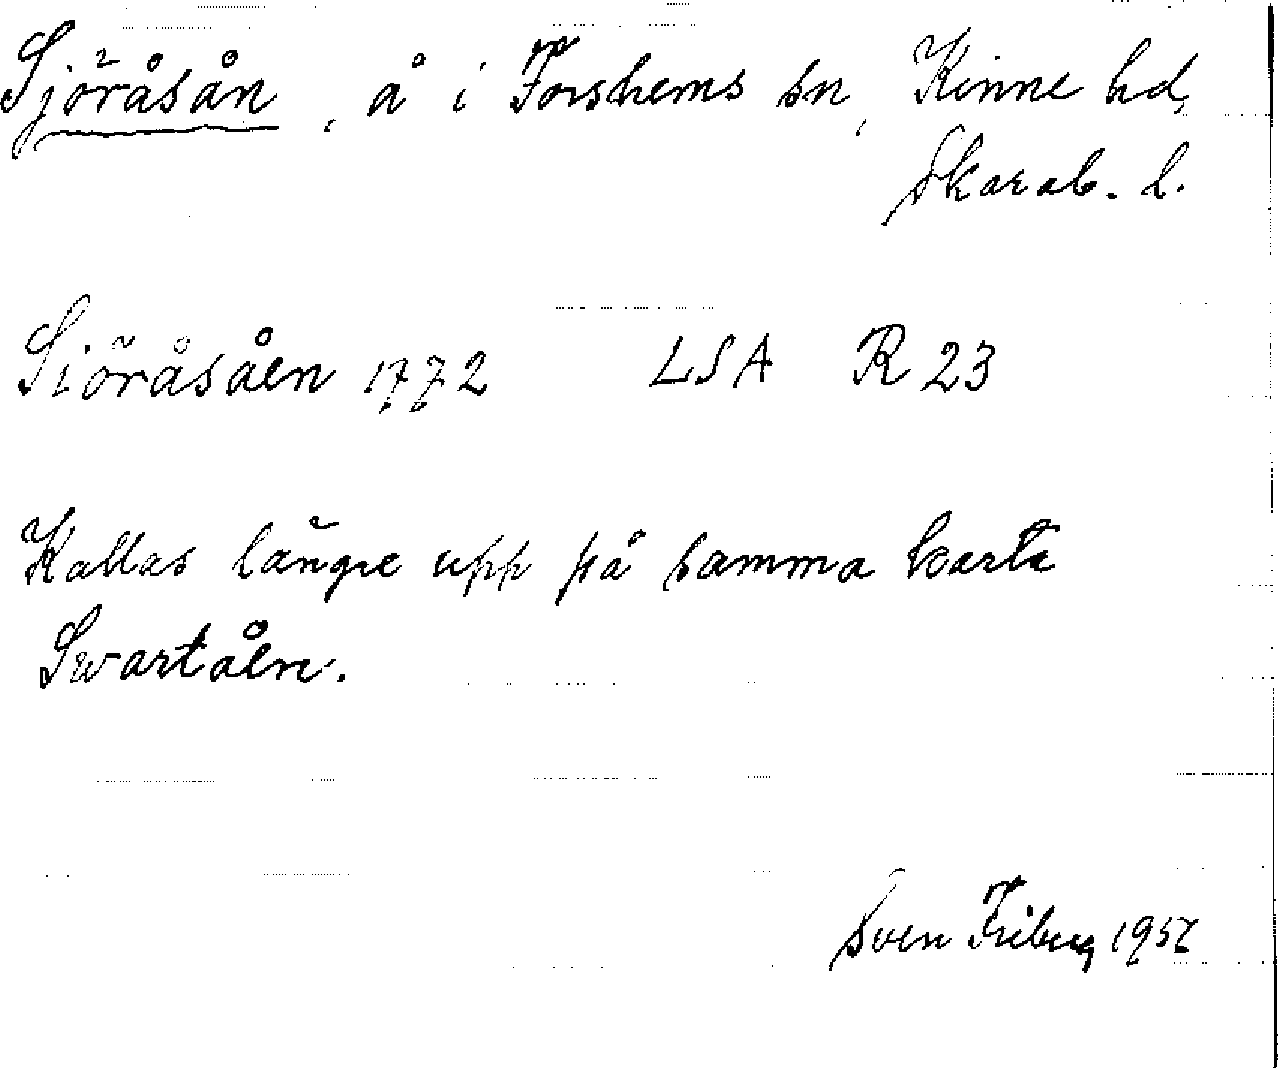 Sjöråsån, å i Forshems sn, Kinne hd,
Skarab. l.
Siöråsåen 1772 LSA R 23
Kallas längre upp på samma karta
Swartåen.
Sven Friberg 1957